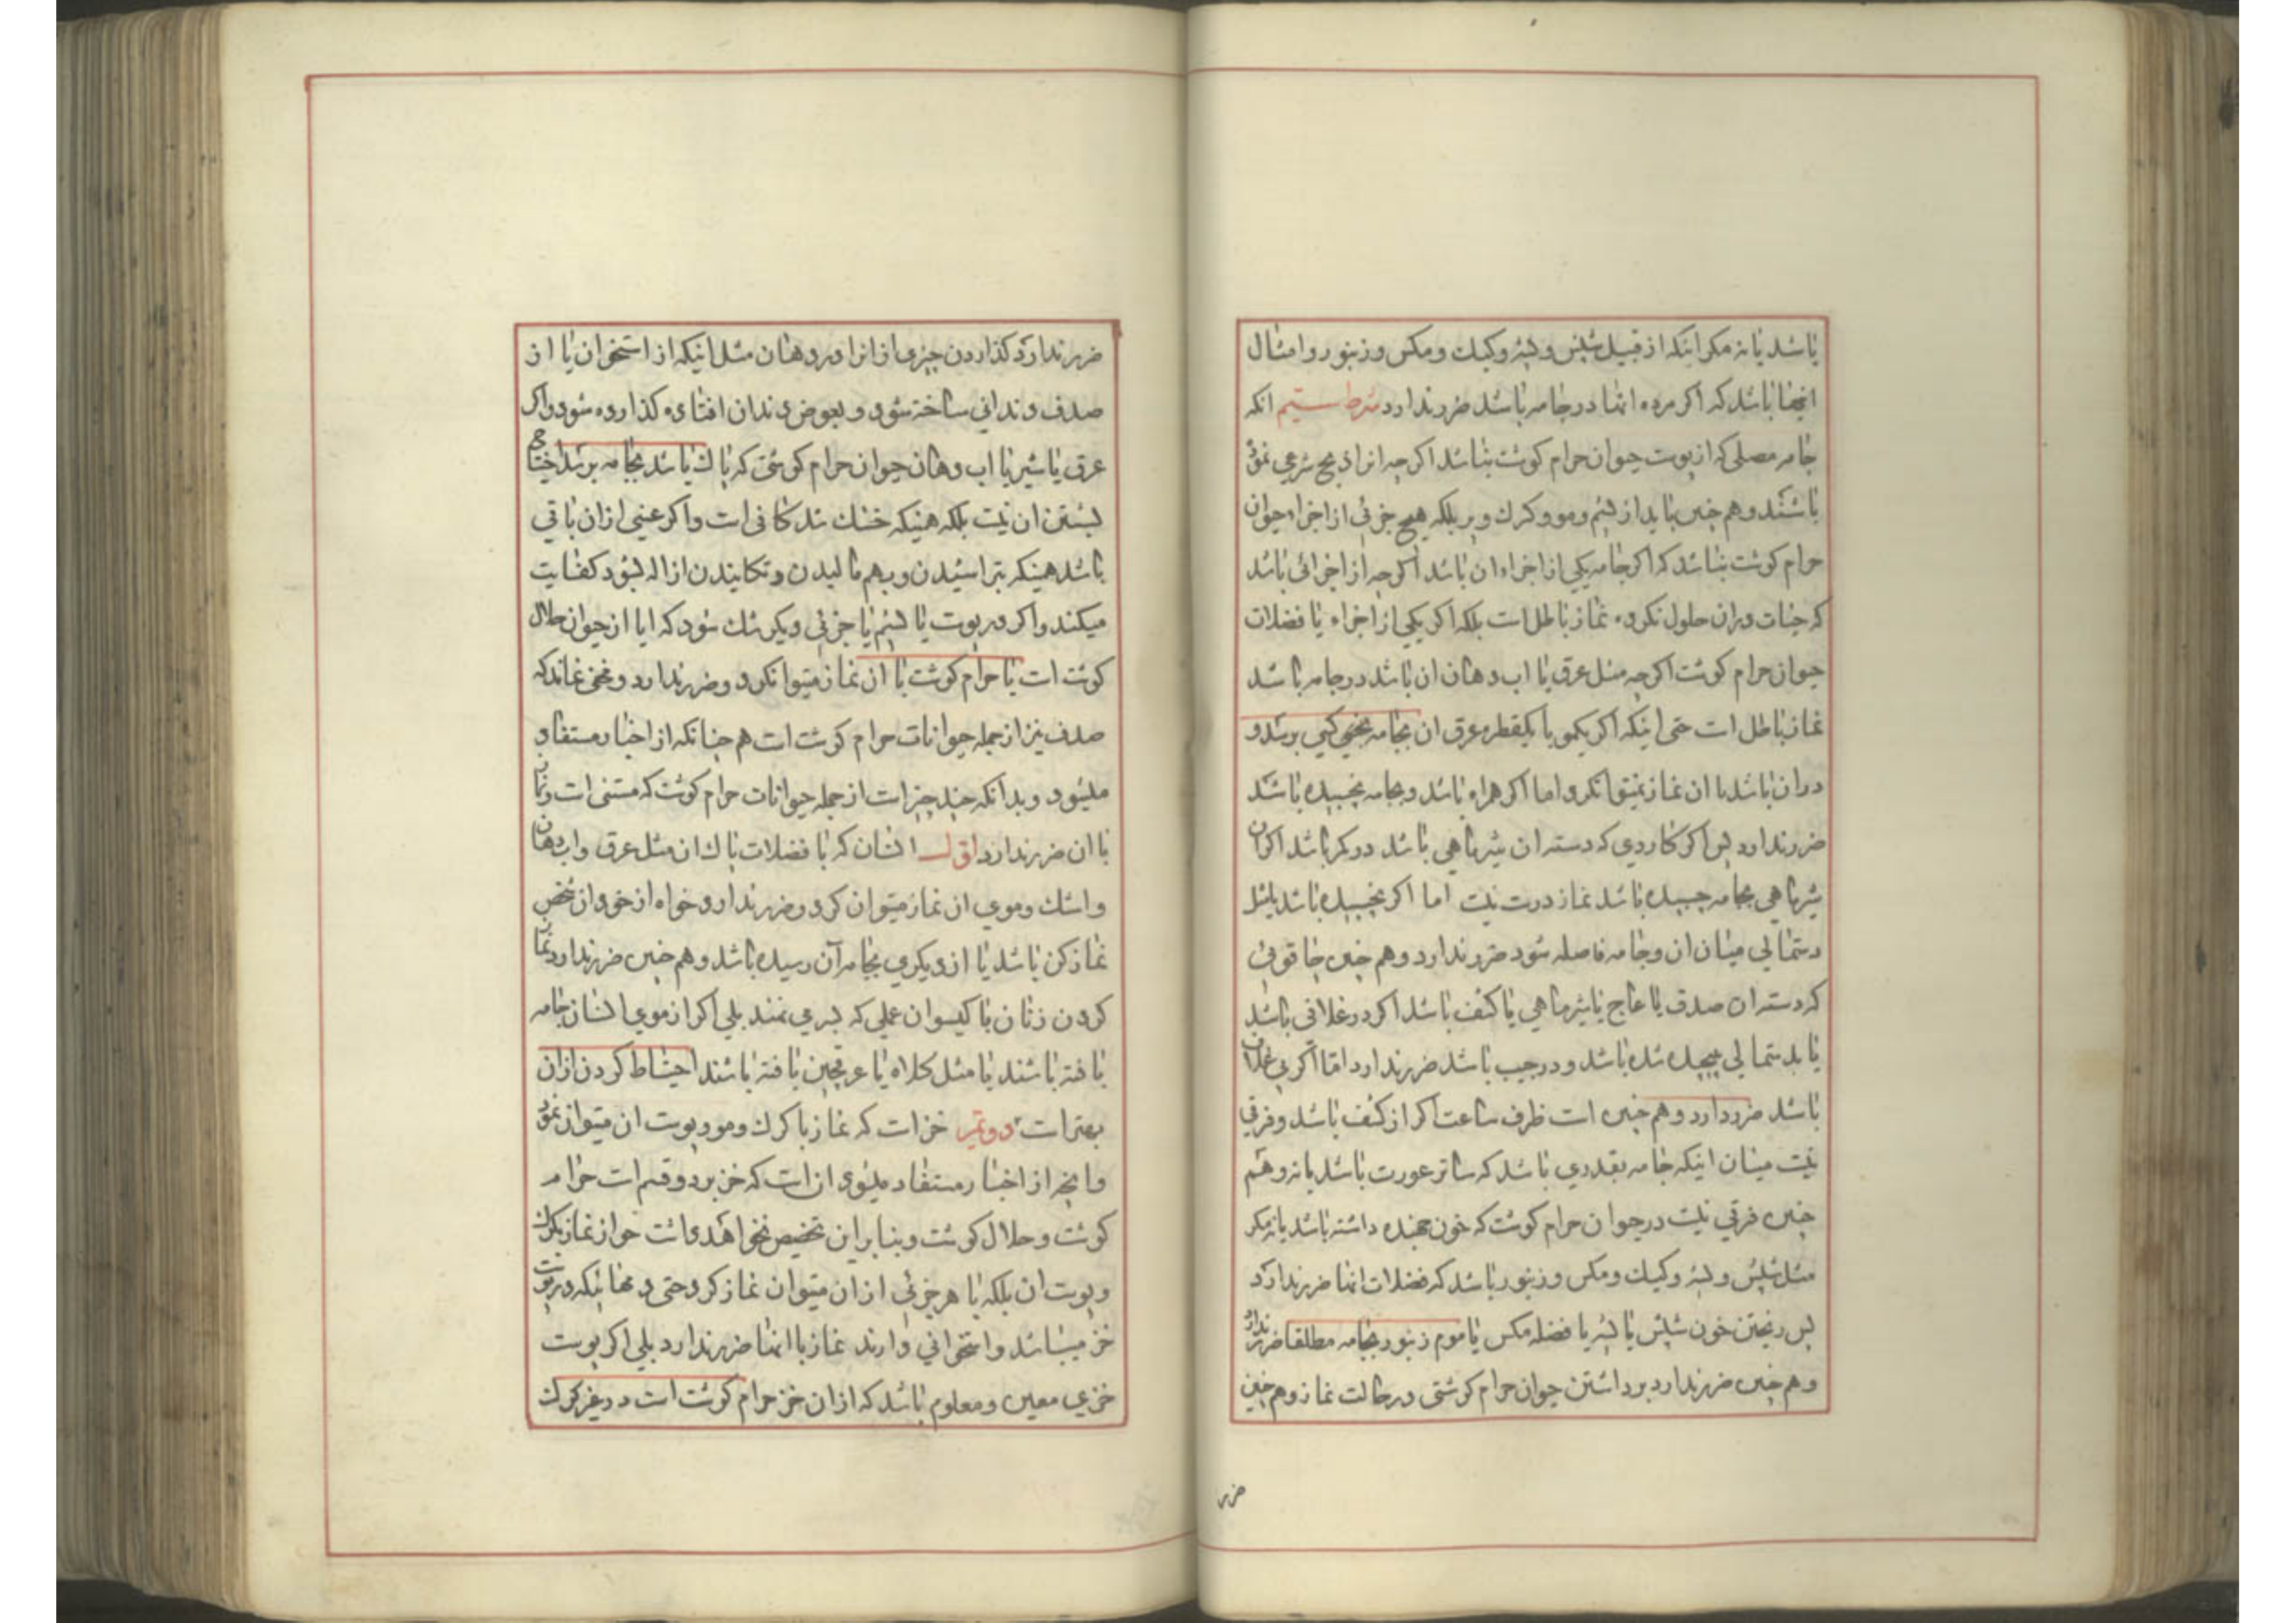 باشد یا نه مکر اینکه از قبیل شپش و پشه و کیك و مکس و زنبور و امثال
اینها باشد که اکر مرده انها در جامه باشد ضرر ندارد شرط سیم انکه
جامه مصلی که از پوست حیوان حرام کوشت نباشد اکرچه انرا ذبح شرعی نموده
باشند و هم چنین باید از پشم و مو و کرك و پر بلکه هیچ جزئی از اجزاء حیوان
حرام کوشت نباشد که اکر جامه یکی از اجزاء ان باشد اکرچه از اجزائی باشد
که حیات دران حلول نکرده نماز باطل است بلکه اکر یکی از اجزاء یا فضلات
حیوان حرام کوشت اکرچه مثل عرق یا اب دهان ان باشد در جامه باشد
نماز باطل است حتی اینکه اکر یکمو یا یکقطره عرق ان بجامه برسد و
دران باشد با ان نماز نمیتوانکرد و اما اکر همراه باشد و بجامه نچسبیده باشد
ضرر ندارد پس اکر کاردی که دسته ان شیرماهی باشد در کمر باشد اکر ان
شیرماهی بجامه چسبیده باشد نماز درست نیست اما اکر نچسبیده باشد یا مثل
دستمالی میان ان و جامه فاصله شود ضرر ندارد و هم چنین چاقوئی
که دسته ان صدف یا عاج یا شیرماهی یا کشف باشد اکر در غلافی باشد
یا بدستمالی پیچیده شده باشد و در جیب باشد ضرر ندارد اما اکر بی غلاف
باشد ضرر دارد و هم چنین است ظرف ساعت اکر از کشف باشد و فرقی
نیست میان اینکه جامه بقدری باشد که ساتر عورت باشد یا نه و هم
چنین فرقی نیست در حیوان حرام کوشت که خون جهنده داشته باشد یا نه مکر
مثل شپش و پشه و کیك و مکس و زنبور باشد که فضلات انها ضرر ندارد
پس ریختن خون شپش یا پشه یا فضله مکس یا موم زنبور بجامه مطلقا ضرر ندارد
و هم چنین ضرر ندارد برداشتن حیوان حرام کوشتی در حالت نماز و هم چنین
ضرر
ضرر ندارد کذاردن چیزی از انرا در دهان مثل اینکه از استخوان یا از
صدف دندانی ساخته شود و بعوض دندان افتاده کذارده شود و اکر
عرق یا شیر یا اب دهان حیوان حرام کوشتی که پاك باشد بجامه برسد احتیاج
بشستن ان نیست بلکه همینکه خشك شد کافی است و اکر عینی ازان باقی
باشد همینکه بتراشیدن و بهم مالیدن و تکانیدن ازاله بشود کفایت
میکند و اکر در پوست یا پشم یا جزئی دیکر شك شود که ایا از حیوان حلال
کوشت است یا حرام کوشت با ان نماز میتوانکرد و ضرر ندارد و مخفی نماند که
صدف نیز از جمله حیوانات حرام کوشت است هم چنانکه از اخبار مستفاد
میشود و بدانکه چند چیز است از جمله حیوانات حرام کوشت که مستثنی است و نماز
با ان ضرر ندارد اوّل انسان که با فضلات پاك ان مثل عرق و اب دهان
و اشك و موی ان نماز میتوان کرد و ضرر ندارد خواه از خود ان شخص
نماز کن باشد یا از دیکری بجامه آن رسیده باشد و هم چنین ضرر ندارد نماز
کردن زنان با کیسوان عملی که بسر می نهند بلی اکر از موی انسان جامه
بافته باشند یا مثل کلاه یا عرقچین بافته باشند احتیاط کردن ازان
بهتر است دویّم خز است که نماز با کرك و مو و پوست ان میتوان نمود
و انچه از اخبار مستفاد میشود ان است که خز بر دو قسم است حرام
کوشت و حلال کوشت و بنابراین تخصیص نخواهد داشت جواز نماز بکرك
و پوست ان بلکه با هر جزئی ازان میتوان نماز کرد حتی دنمهائیکه در پوست
خز میباشد و استخوانی دارند نماز با انها ضرر ندارد بلی اکر پوست
خزی معین و معلوم باشد که ازان خز حرام کوشت است در غیر کرك